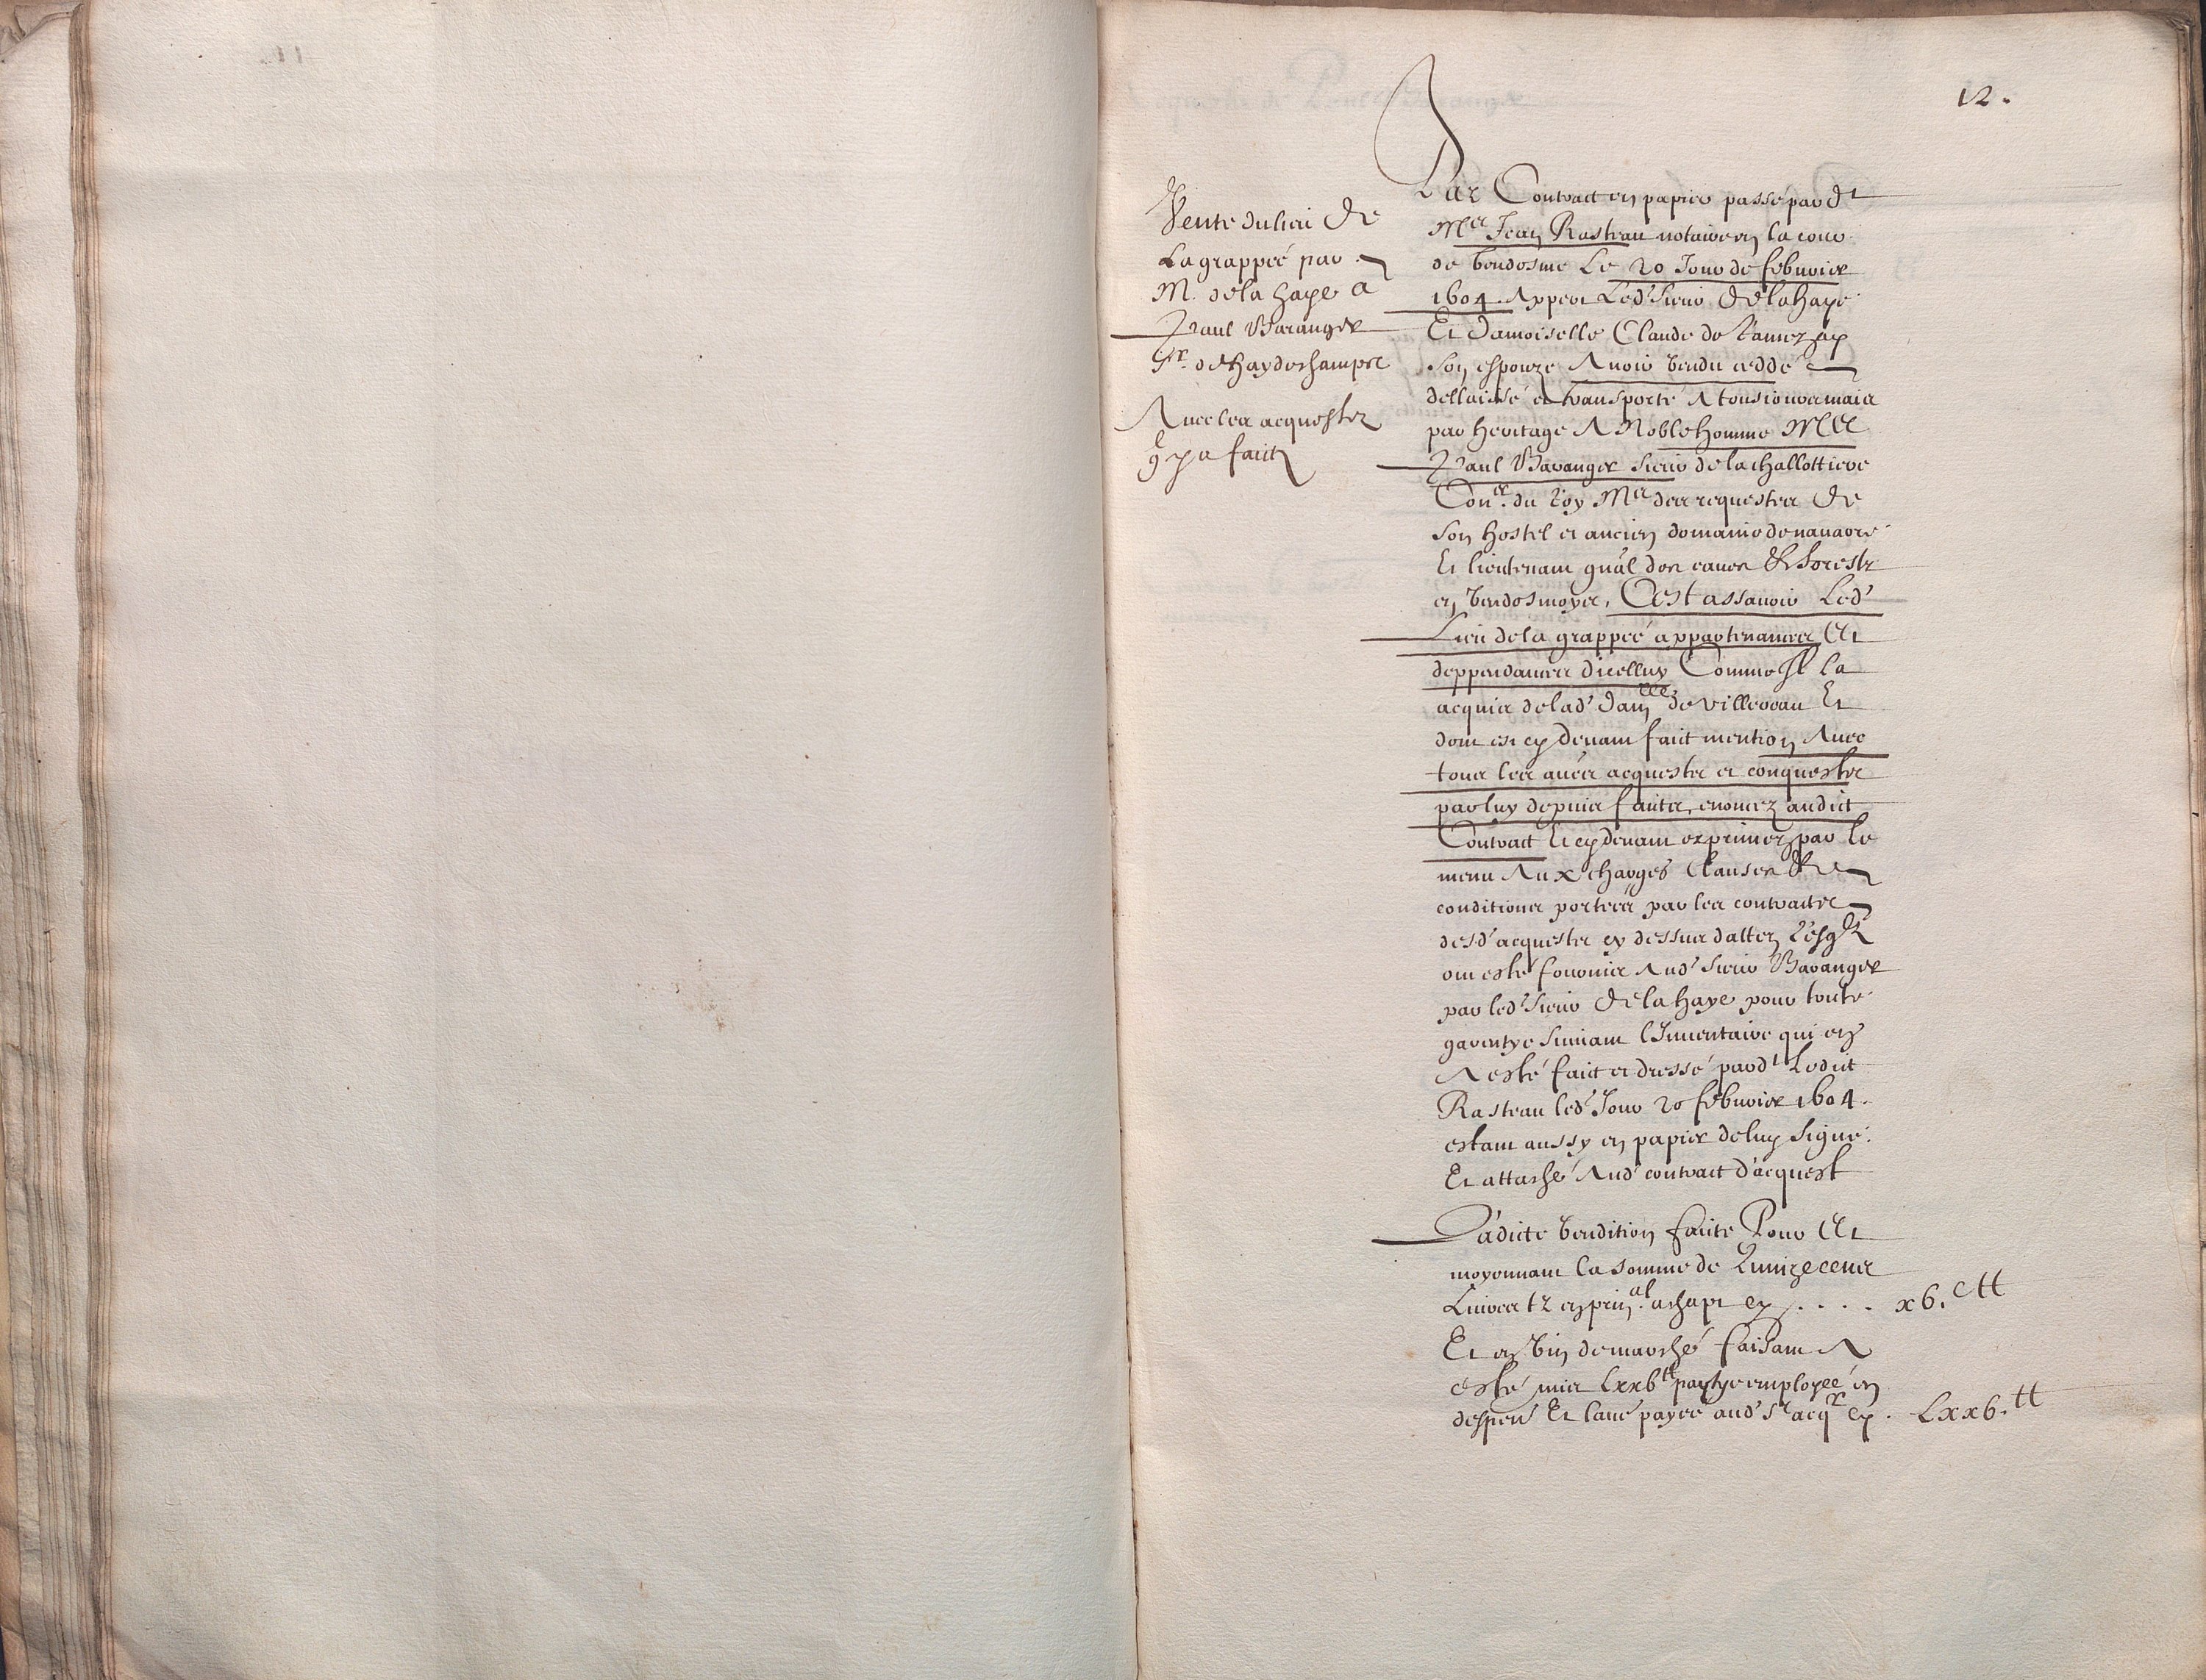 12.
Vente du lieu de
La grappée par
M. de la haye a
Paul Baranger
Sr. de haydeschampz
Avec les acquestz
q̃ y a faitz
Par Contract en papier passé pard.t
Me Jean Rasteau notaire en la cour
de Vendosme Le 20 Jour de febvrier
1604. Appert Led' Sieur de la haye
Et damoiselle Claude de
son espouze Avoir vendu ceddé
dellaissé et transporté A tousiours mais
par heritage A Noble homme Me
Paul Baranger sieur de la challottiere
Coner. du Roy Me des requestes de
son hostel et ancien domaine de navarre
Et lieutenant gñal des eaues & forestz
en vendosmoys, Cest assavoir Led'
Lieu de la grappée appartenances Et
deppendances dicelluy Comme Il la
acquis de lad' damlle de villeveau Et
dont est cy devant fait mention Avec
tous les aues acquestz et conquestz
par luy depuis faitz, enoncez audict
Contract Et cy devant exprimez par le
menu Aux charges Clauses &
conditions portées par les contractz
desd' acquestz cy dessus dattez Lesqlz
ont esté fournis Aud' Sieur Baranger
par led' Sieur de la haye pour toute
garentye suivant l'Inventaire qui en
A esté faict et dressé pard.t Ledict
Rasteau led' Jour 20 febvrier 1604.
estant aussy en papier de luy signé.
Et attaché Aud' contract d'acquest
Ladicte vendition faicte Pour Et
moyennant la somme de Quinze cens
Livres tz en prinal. achapt cy . . . . xv.c tt
Et en vin de marché faisant A
esté mis Lxxvtt partye employée en
despens Et laue payée aud' Sr acqr cy . Lxxv.tt